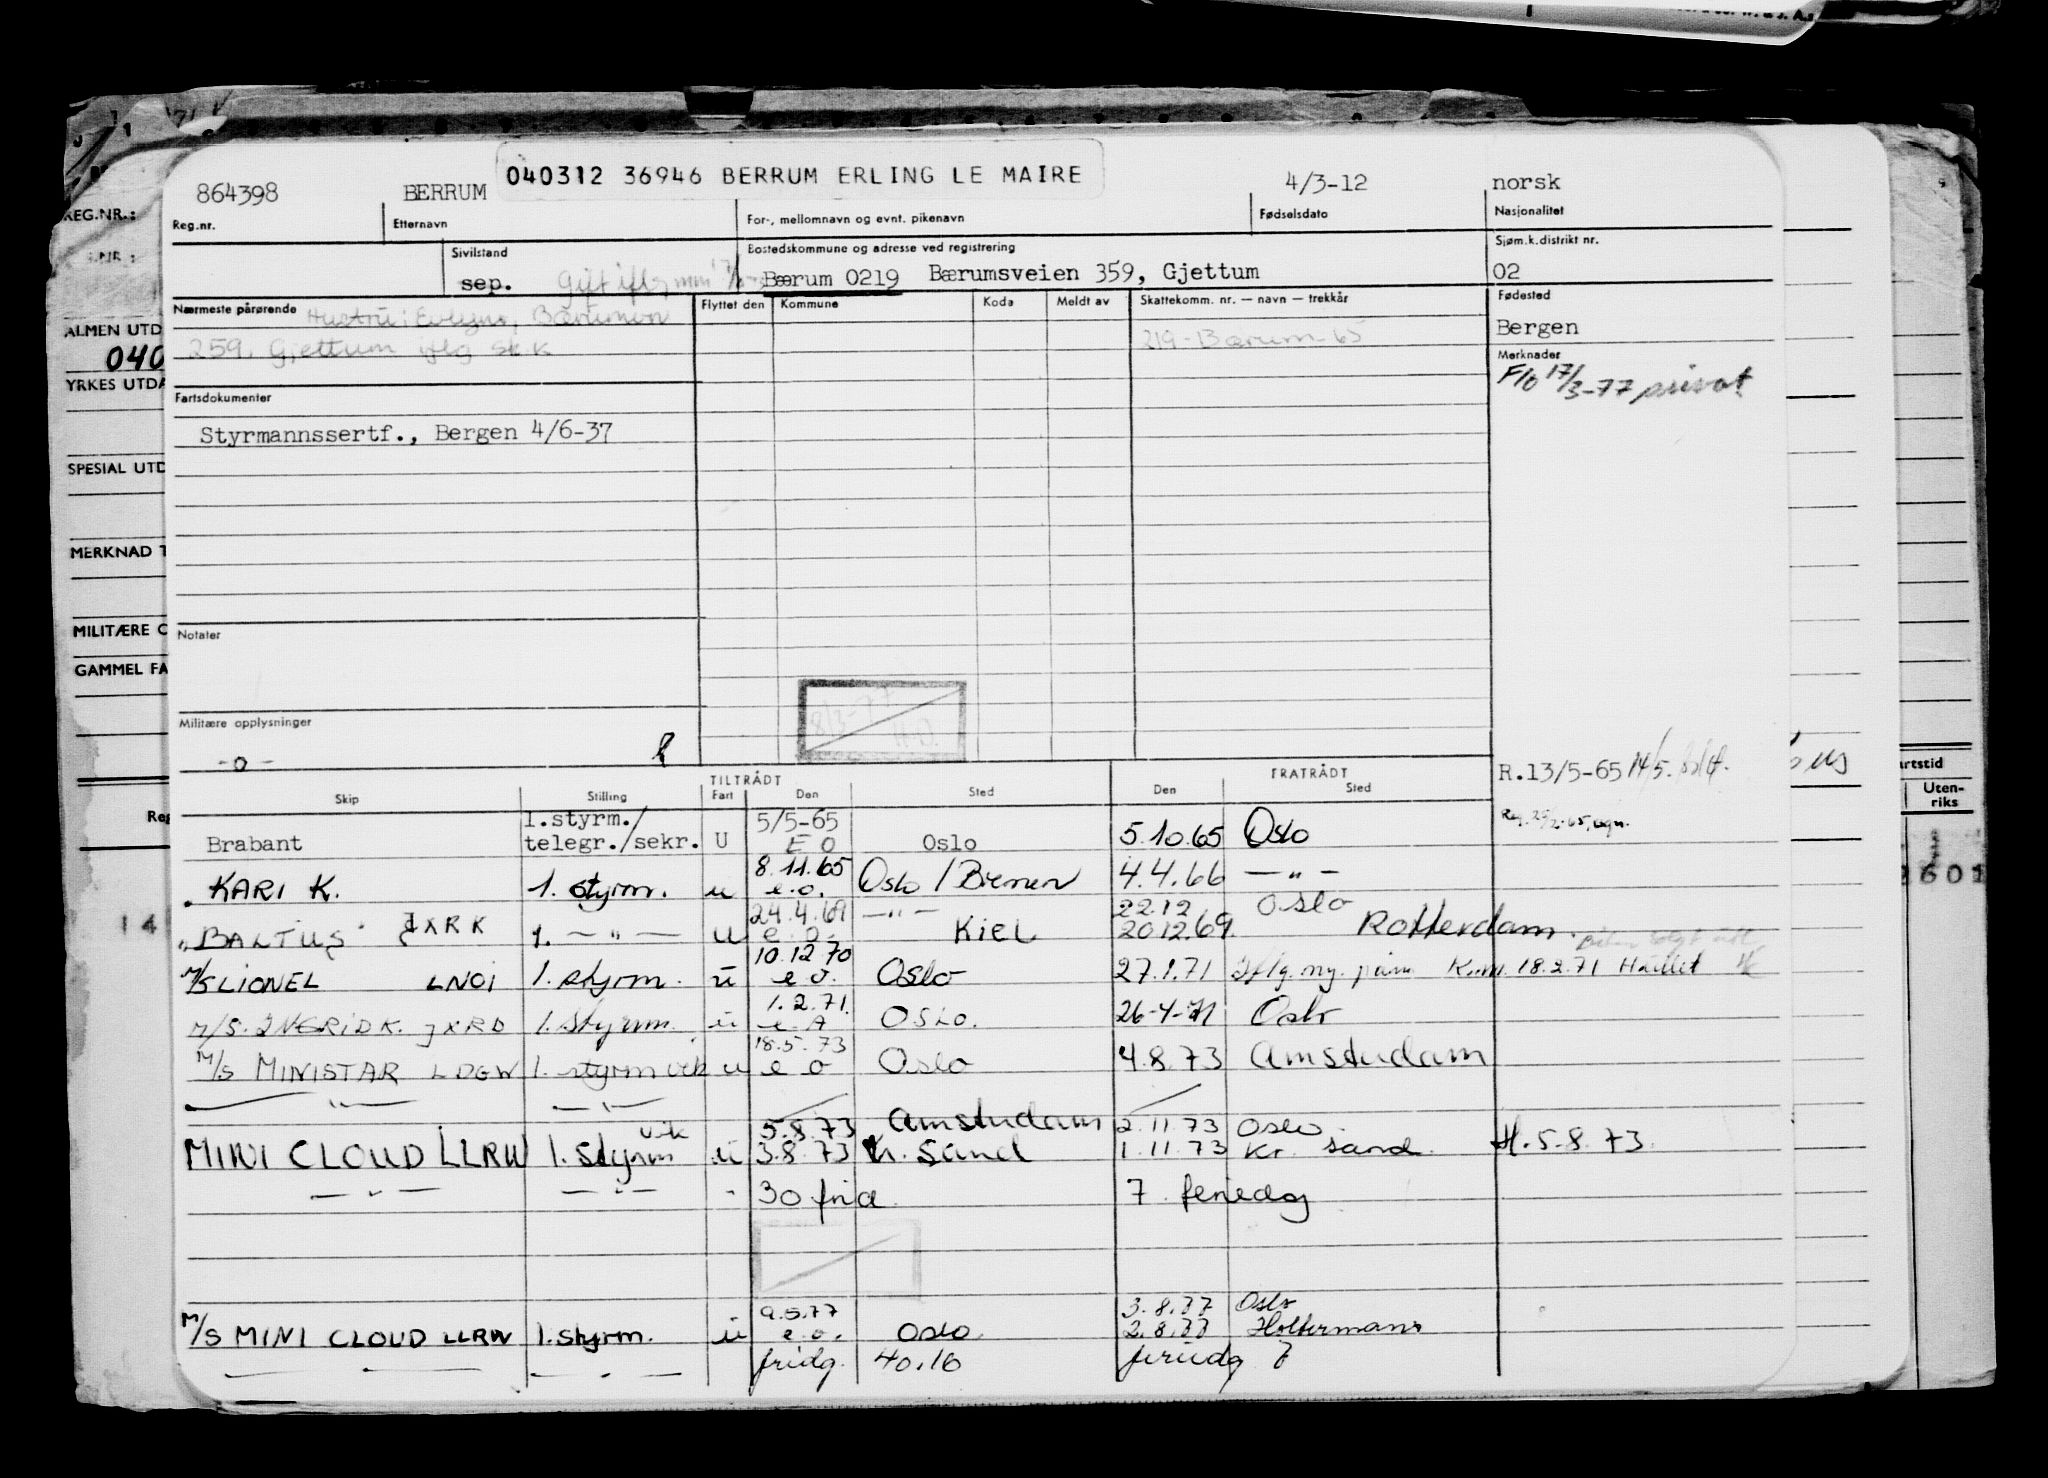 040312 36946 BERRUM ERLING LE MAIRE
864398 BERRUM 4/3-12 norsk
REG.NR.:
Reg.nr. Etternavn For-, mellomnavn og evnt. pikenavn Fødselsdato Nasjonalitet
Sivilstand Bostedskommune og adresse ved registrering Sjøm.k.distrikt nr.
sep. Gift iflg Bærum 0219 Bærumsveien 359, Gjettum 02
Nærmeste pårørende Flyttet den Kommune Koda Meldt av Skattekomm. nr. — navn — trekkår Fødested
Hustru:
259, Gjettum iflg sk.k 219-Bærum-65 Bergen
ALMEN UTD
040
YRKES UTDA
Merknader
F/o 17/3-77 privat
Fartsdokumenter
Styrmannssertf., Bergen 4/6-37
SPESIAL UTD
MERKNAD T
MILITÆRE O
GAMMEL FA
Notater
8/3-77
H.O.
Militære opplysninger
-o-
R.13/5-65 14/5.
TILTRÅDT FRATRÅDT
Skip Stilling Fart Den Sted Den Sted
artstid
Uten-
riks
Reg
Brabant 1.styrm./ telegr./sekr. U 5/5-65 E O Oslo 5.10.65 Oslo
KARI K. 1. styrm. u 8.11.65 e.o. Oslo / Bremen 4.4.66 — " —
"BALTUS" JXRK 1. — " — u 24.4.69 e.o. — " — Kiel 22.12 20.12.69. Oslo Rotterdam.
M/S LIONEL LNOI 1. styrm. u 10.12.70 e.o. Oslo 27.1.71 Iflg. my. 18.2.71
M/S. INGRID K. JXRD 1. styrm. u 1.2.71. e.A OSLO. 26-4-71 Oslo
M/S MINISTAR LDGW 1. styrm vik u 18.5.73 e o Oslo 4.8.73 Amsterdam
— " — — " —
MINI CLOUD LLRW 1. styrm vik u 5.8.73 3.8.73 Amsterdam Kr. Sand 2.11.73 1.11.73 Oslo Kr. sand. H. 5-8.73.
— " — — " — - 30 frid. 7 feriedg
M/S MINI CLOUD LLRW 1. styrm. u 9.5.77 e.o. Oslo 3.8.77 2.8.77 Oslo Holtermans
— " — — " — fridg. 40.16 feriedg 7
14
2601